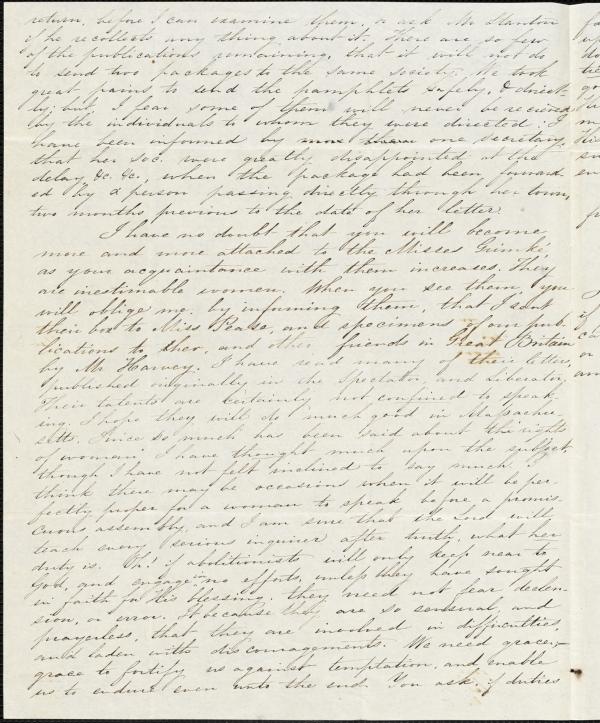 return, before I can examine them, or ask Mr Stanton
if he recollects any thing about it. There are so few
of the publications remaining, that it will not do
to send two packages to the same society. We took
great pains to send the pamphlets safely, & direct-
ly; but I fear some of them will never be received
by the individuals to whom they were directed: I
have been informed by more than one secretary,
that her Soc. were greatly disappointed at the
delay &c. &c., when the package had been forward-
ed by a person passing directly through her town,
two months previous to the date of her letter.
I have no doubt that you will become
more and more attached to the Misses Grimké,
as your acquaintance with them increases. They
are inestimable women. When you see them, you
will oblige me, by informing them, that I sent
their box to Miss Pease, and specimens of our pub-
lications to her, and other friends in Great Britain
by Mr Harvey. I have read many of their letters,
published originally in the Spectator, and Liberator,
Their talents are certainly not confined to speak-
ing. I hope they will do much good in Massachu-
setts. Since so much has been said about "the rights
of woman" I have thought much upon the subject,
though I have not felt inclined to say much. I
think there may be occasions when it will be per-
fectly proper for a woman to speak before a promis-
cuous assembly, and I am sure that the Lord will
teach every serious inquirer after truth, what her
duty is. Oh! if abolitionists will only keep near to
God, and engage in no efforts, unless they have sought
in faith for His blessing, they need not fear declen-
sion, or error. It because they are so sensual, and
prayerless, that they are involved in difficulties,
and laden with discouragements. We need grace,—
grace to fortify us against temptation, and enable
us to endure even unto the end. You ask, if duties